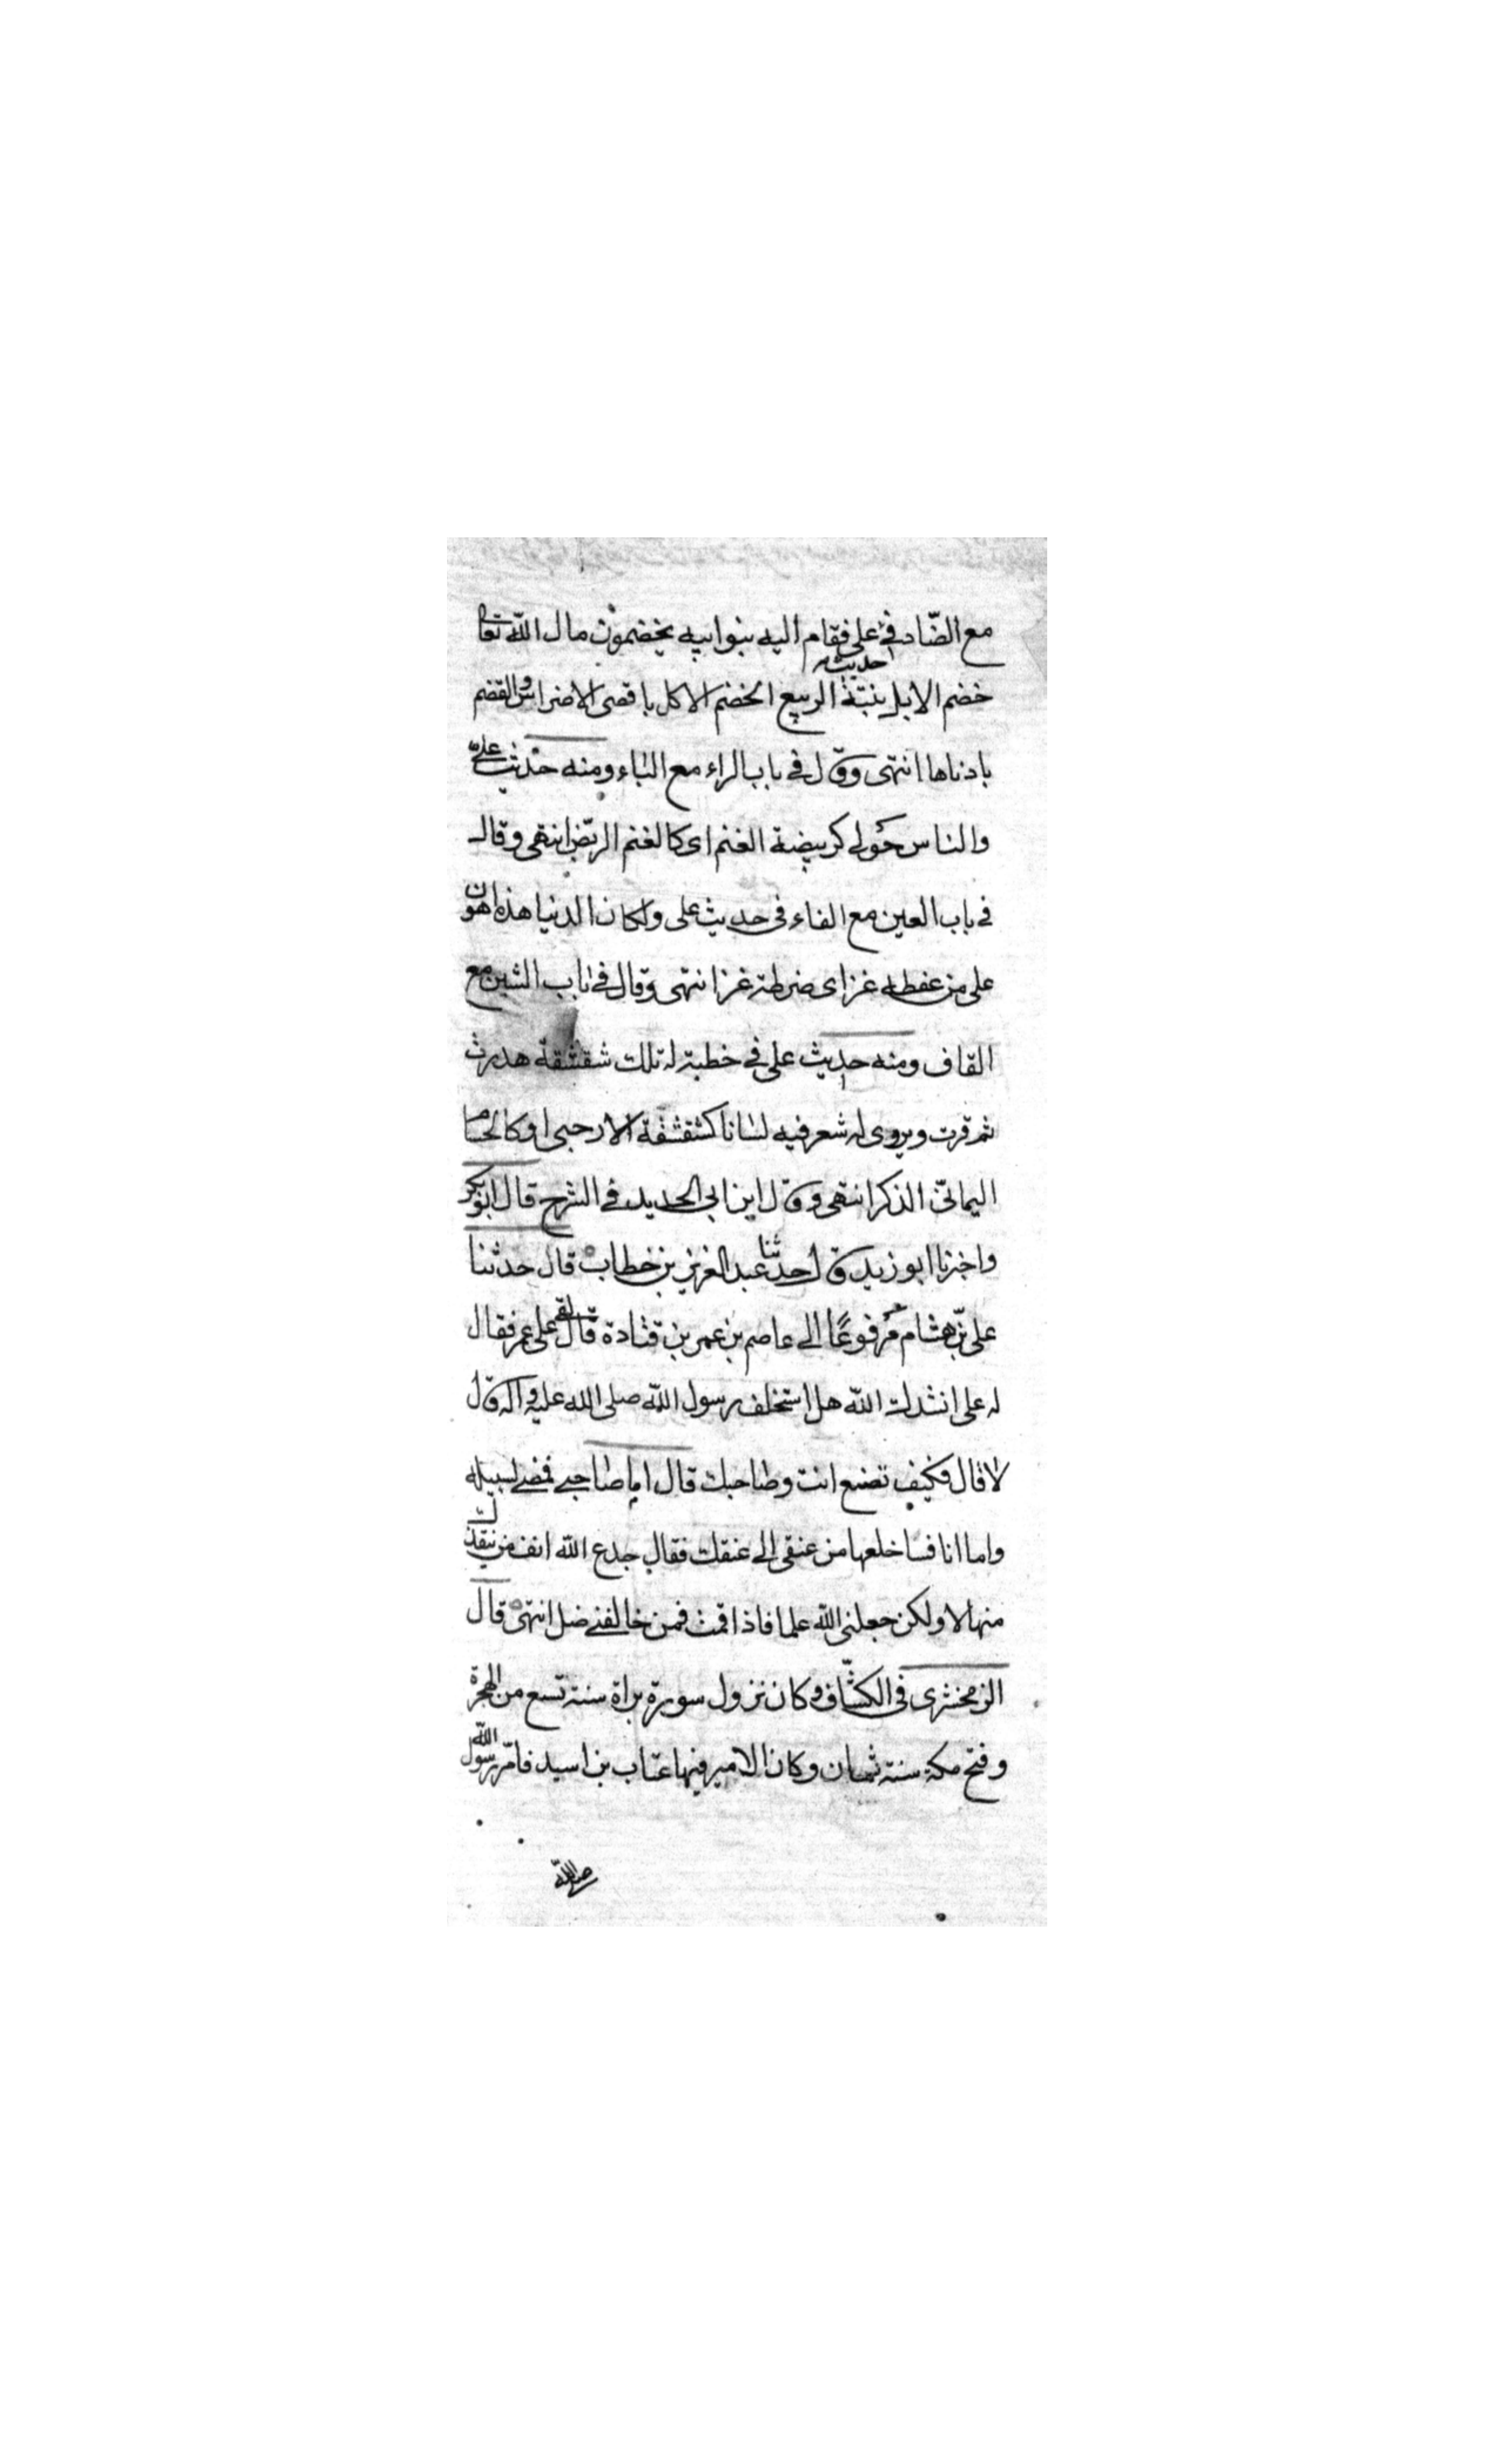 مع الضّاد في حديث على فقام اليه بنو ابيه يخضمون مال الله تعا
خضم الابل نبتة الربيع الخضم الاكل باقصى الاضراس والقضم
بادناها انتهى وقال في باب الراء مع الباء ومنه حديث علىّ
والناس حولى كربيضة الغنم اى كالغنم الربّض انتهى وقال
في باب العين مع الفاء في حديث على ولكان الدنيا هذه اهون
على من عفطه عنز اى ضرطة عنز انتهى وقال في باب الشين مع
القاف ومنه حديث على في خطبة له تلك شقشقة هدرت
ثم قرت ويروى له شعر فيه لسانا كشقشقة الارحبى او كالحسام
اليمانىّ الذكر انتهى وقال ابن ابى الحديد في الشرح قال ابو بكر
واخبرنا ابو زيد قال حدثنا عبد العزيز بن خطاب قال حدثنا
على بن هشام مرفوعًا الى عاصم بن عمر بن قتادة قال لقى على عمر فقال
له على انشدك الله هل استخلفك رسول الله صلى الله عليه وآله قال
لا قال فكيف تصنع انت وصاحبك قال اما صاحبى فمضى لسبيله
واما انا فساخلعها من عنقى الى عنقك فقال جدع الله انف من ينقذك
منها لا ولكن جعلنى الله علما فاذا قمت فمن خالفنى ضل انتهى قال
الزمخشرى في الكشّاف وكان نزول سورة براة سنة تسع من الهجرة
وفتح مكة سنة ثمان وكان الامير فيها عتاب بن اسيد فامّر رسول الله
صلى الله